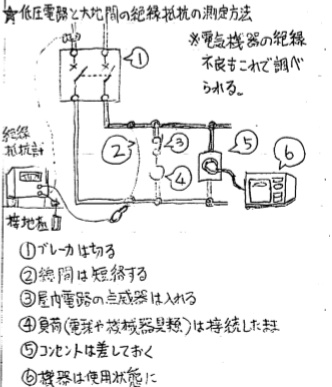 ★低圧電路と大地間の絶縁抵抗の測定方法
※電気機器の絶縁
不良もこれで調べ
られる。
①
絶縁
抵抗計
②
③
④
⑤
⑥
接地極
①ブレーカは切る
②線間は短絡する
③屋内電路の点滅器は入れる
④負荷(電球や機械器具類)は接続したまま
⑤コンセントは差しておく
⑥機器は使用状態に